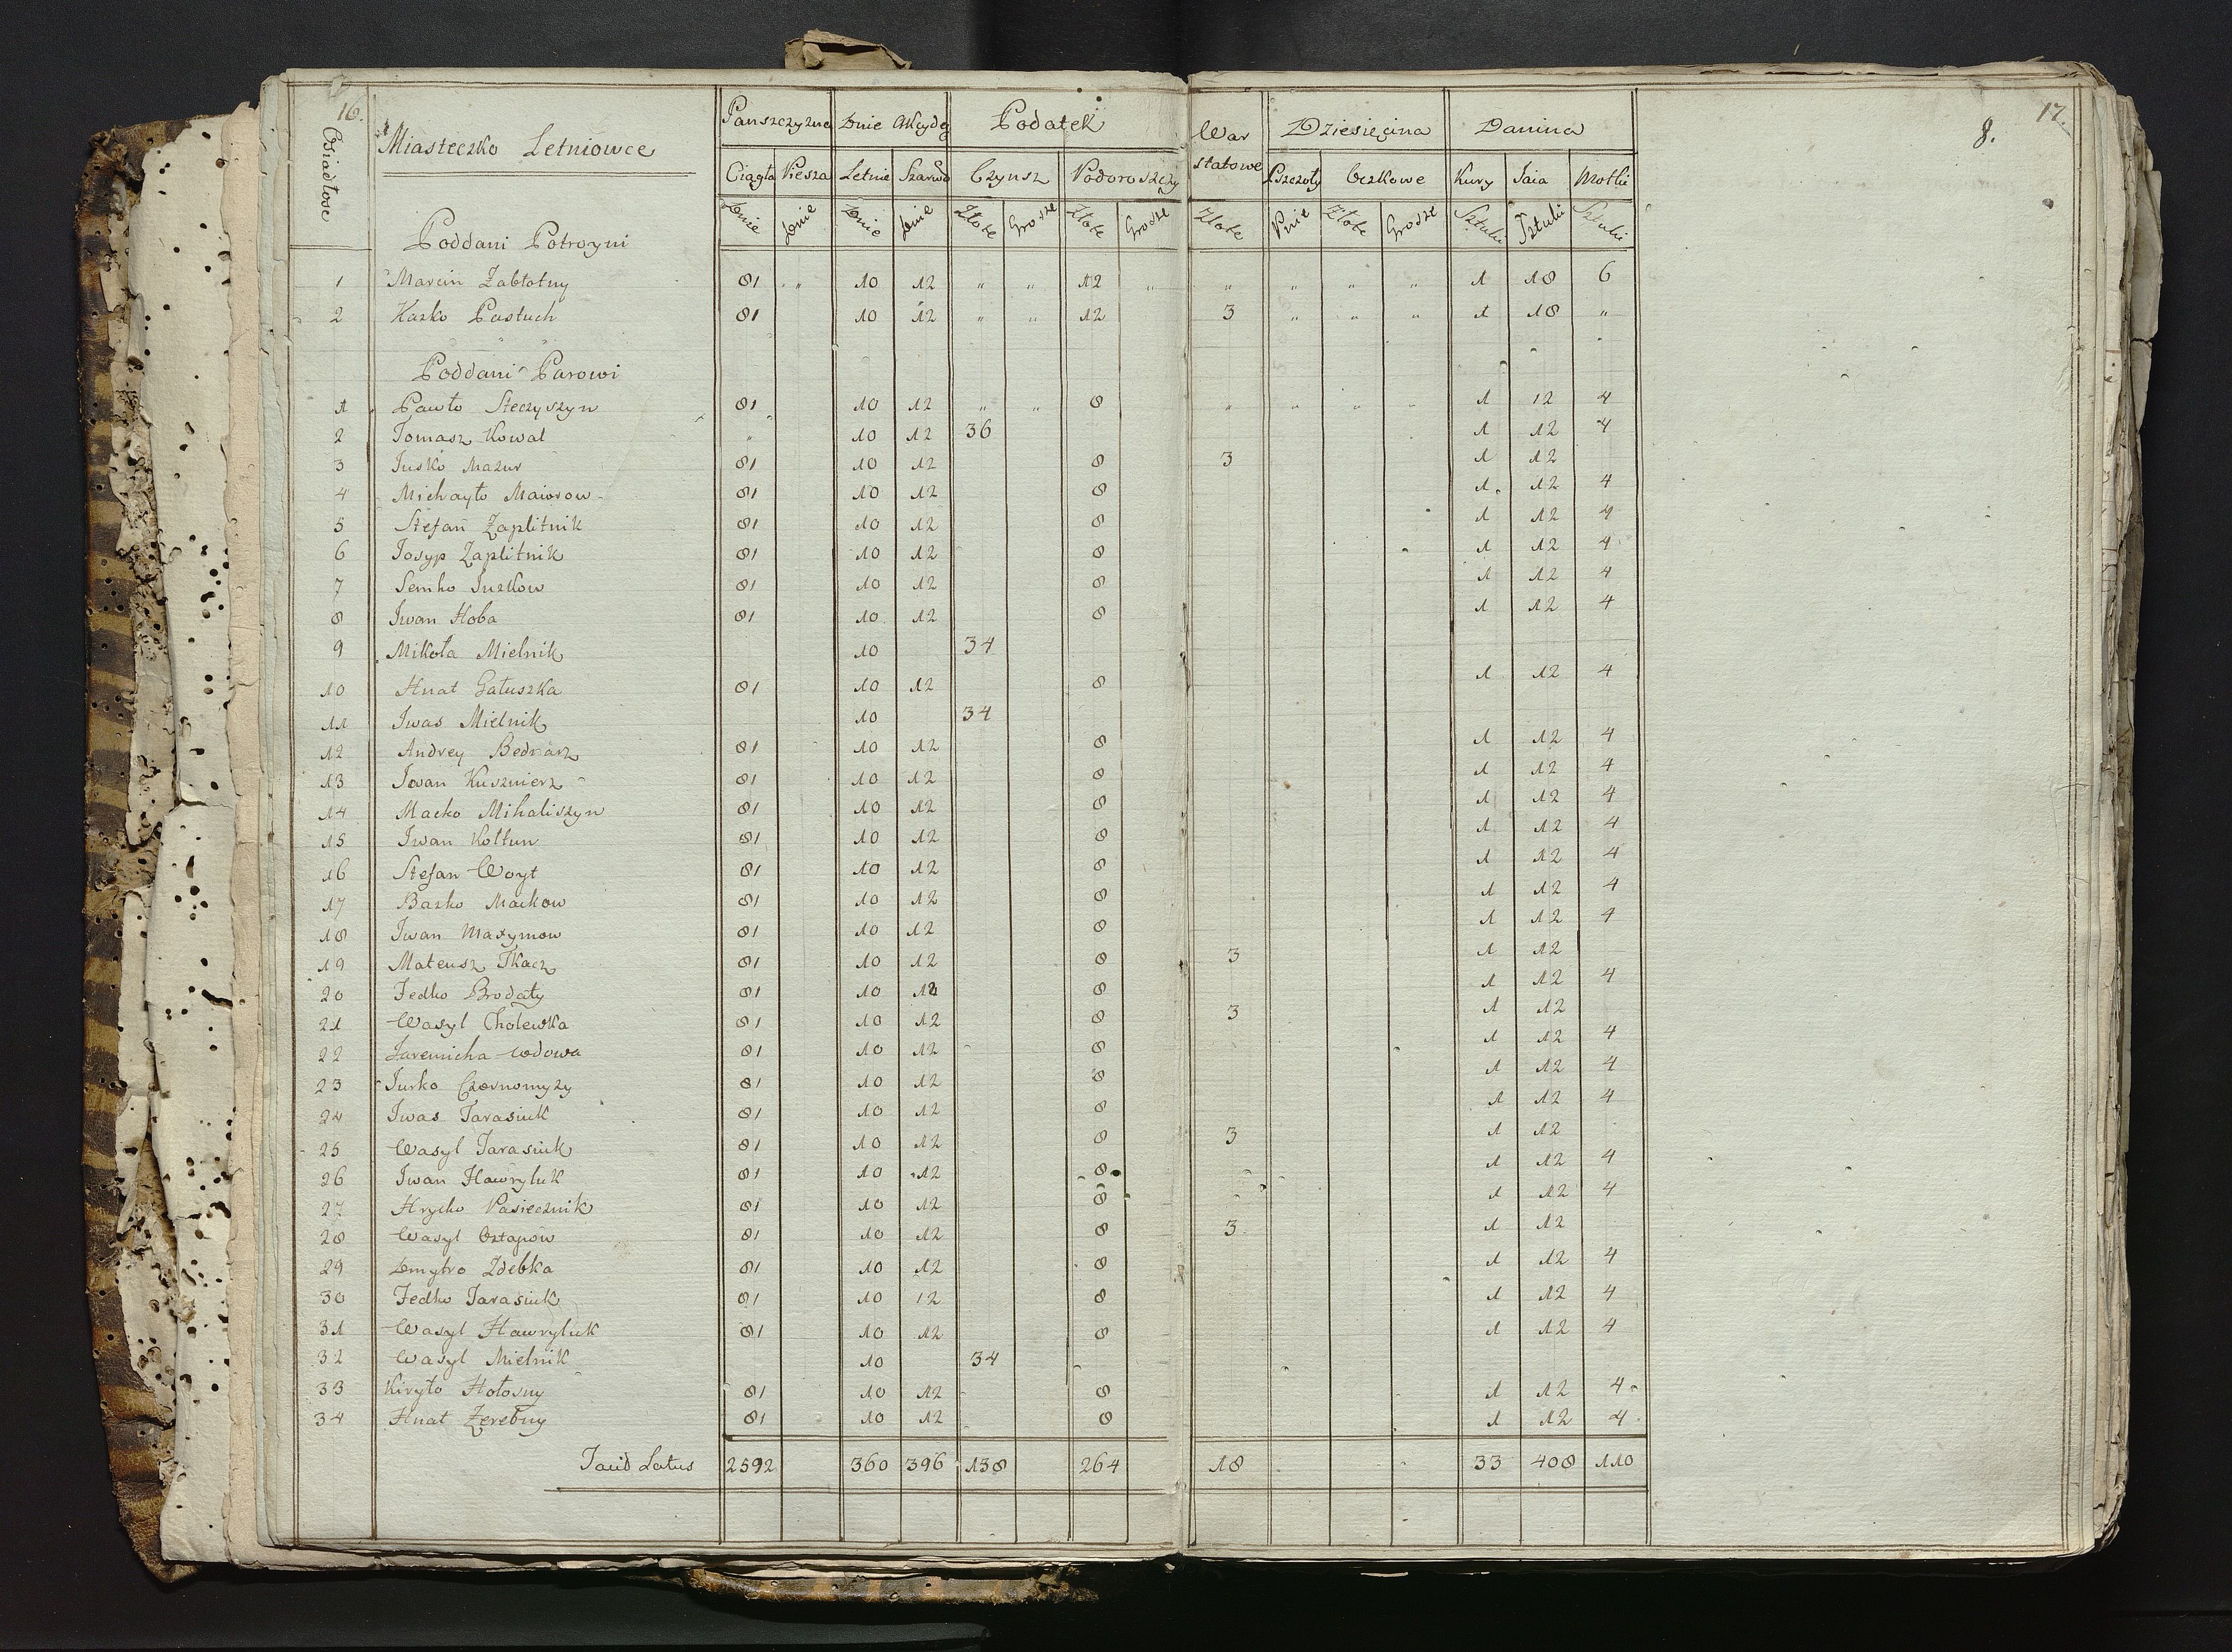 16.
17.
8.
Osiadłość
Miasteczko Letniowce
Panszczyzna Dnie Podatek War Dziesięcina Danina
Ciągła Piesza Letnie Szarw. Czynsz Podoroszczy statowe Pszczoły Oczkowe Kury Jaia Motki
Dnie Dnie Dnie Dnie Złote Grosze Złote Grosze Złote Pnie Złote Grosze Sztuki Sztuki Sztuki
Poddani Potroyni
1 Marcin Zabłotny 81 " 10 12 " " 12 " " " " " 1 18 6
2 Kasko Pastuch 81 10 12 " " 12 3 " " " 1 18 "
Poddani Parowi
1 Pawło Steczyszyn 81 10 12 " " 8 " " " " 1 12 4
2 Tomasz Kowal " 10 12 36 1 12 4
3 Jusko Mazur 81 10 12 8 3 1 12
4 Michayło Maiorow 81 10 12 8 1 12 4
5 Stefan Zaplitnik 81 10 12 8 1 12 4
6 Josyp Zaplitnik 81 10 12 8 1 12 4
7 Semko Juzkow 81 10 12 8 1 12 4
8 Iwan Hoba 81 10 12 8 1 12 4
9 Mikoła Mielnik 10 34
10 Hnat Gałuszka 81 10 12 8 1 12 4
11 Iwas Mielnik 10 34
12 Andrey Bednarz 81 10 12 8 1 12 4
13 Iwan Kusznierz 81 10 12 8 1 12 4
14 Macko Mihaliszyn 81 10 12 8 1 12 4
15 Iwan Kołtun 81 10 12 8 1 12 4
16 Stefan Woyt 81 10 12 8 1 12 4
17 Basko Mackow 81 10 12 8 1 12 4
18 Iwan Maxymow 81 10 12 8 1 12 4
19 Mateusz Tkacz 81 10 12 8 3 1 12
20 Fedko Brodaty 81 10 12 8 1 12 4
21 Wasyl Cholewka 81 10 12 8 3 1 12
22 Jaremicha wdowa 81 10 12 8 1 12 4
23 Jurko Czornomyzy 81 10 12 8 1 12 4
24 Iwas Tarasiuk 81 10 12 8 1 12 4
25 Wasyl Tarasiuk 81 10 12 8 3 1 12
26 Iwan Hawryluk 81 10 12 8 1 12 4
27 Hryćko Pasiecznik 81 10 12 8 1 12 4
28 Wasyl Ostapow 81 10 12 8 3 1 12
29 Dmytro Zdebka 81 10 12 8 1 12 4
30 Fedko Tarasiuk 81 10 12 8 1 12 4
31 Wasyl Hawryluk 81 10 12 8 1 12 4
32 Wasyl Mielnik 10 34
33 Kiryło Hołosny 81 10 12 8 1 12 4
34 Hnat Zerebny 81 10 12 8 1 12 4
Latus 2592 360 396 138 264 18 33 408 110